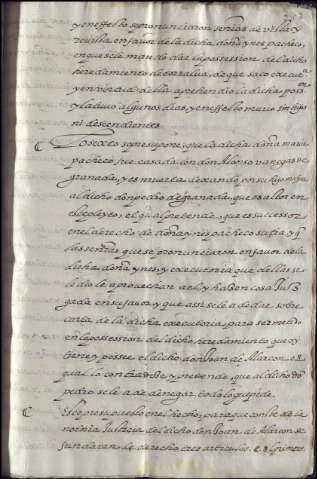 y en effecto se pronunciaron sentēas de vista y
revista en favor de la dicha doña ynes pacheco,
en que se le mandó dar la possession del dicho
heredamento de coraliça, de que sacó executoᵃ
y en virtud della aprehendio la dicha posson
y la tuvo algunos dias, y en effecto murio sin hijos
ni descendientes.
C Lo sexto se presupone, que la dicha doña maria
pacheco fue casada con don Alonso vanegas de
granada, y es muerta dexando por su hijo mayor
al dicho don pedro de granada, que es actor en
este pleyto, el qual pretende, que es successor
en el derecho de doña ynes pacheco su tia, y q̃
las sentēas que se pronunciaron en favor de la
dicha doña ynes, y executoria que dellas se
le dio le aprovechan a el, y haben cosa Juz
gada en su favor, y que assi se le a de dar sobre
carta de la dicha executoria, para ser metido
en la possession del dicho heredamiento que oy
tiene y possee el dicho don Joan de Alarcon, el
qual lo contradize, y pretende, que al dicho don
pedro se le a de denegar todo lo que pide.
C Esto presupuesto en el hecho, para que conste de la
notoria Justicia del dicho don Joan de Alarcon se
fundaran de derecho tres articulos. el primero